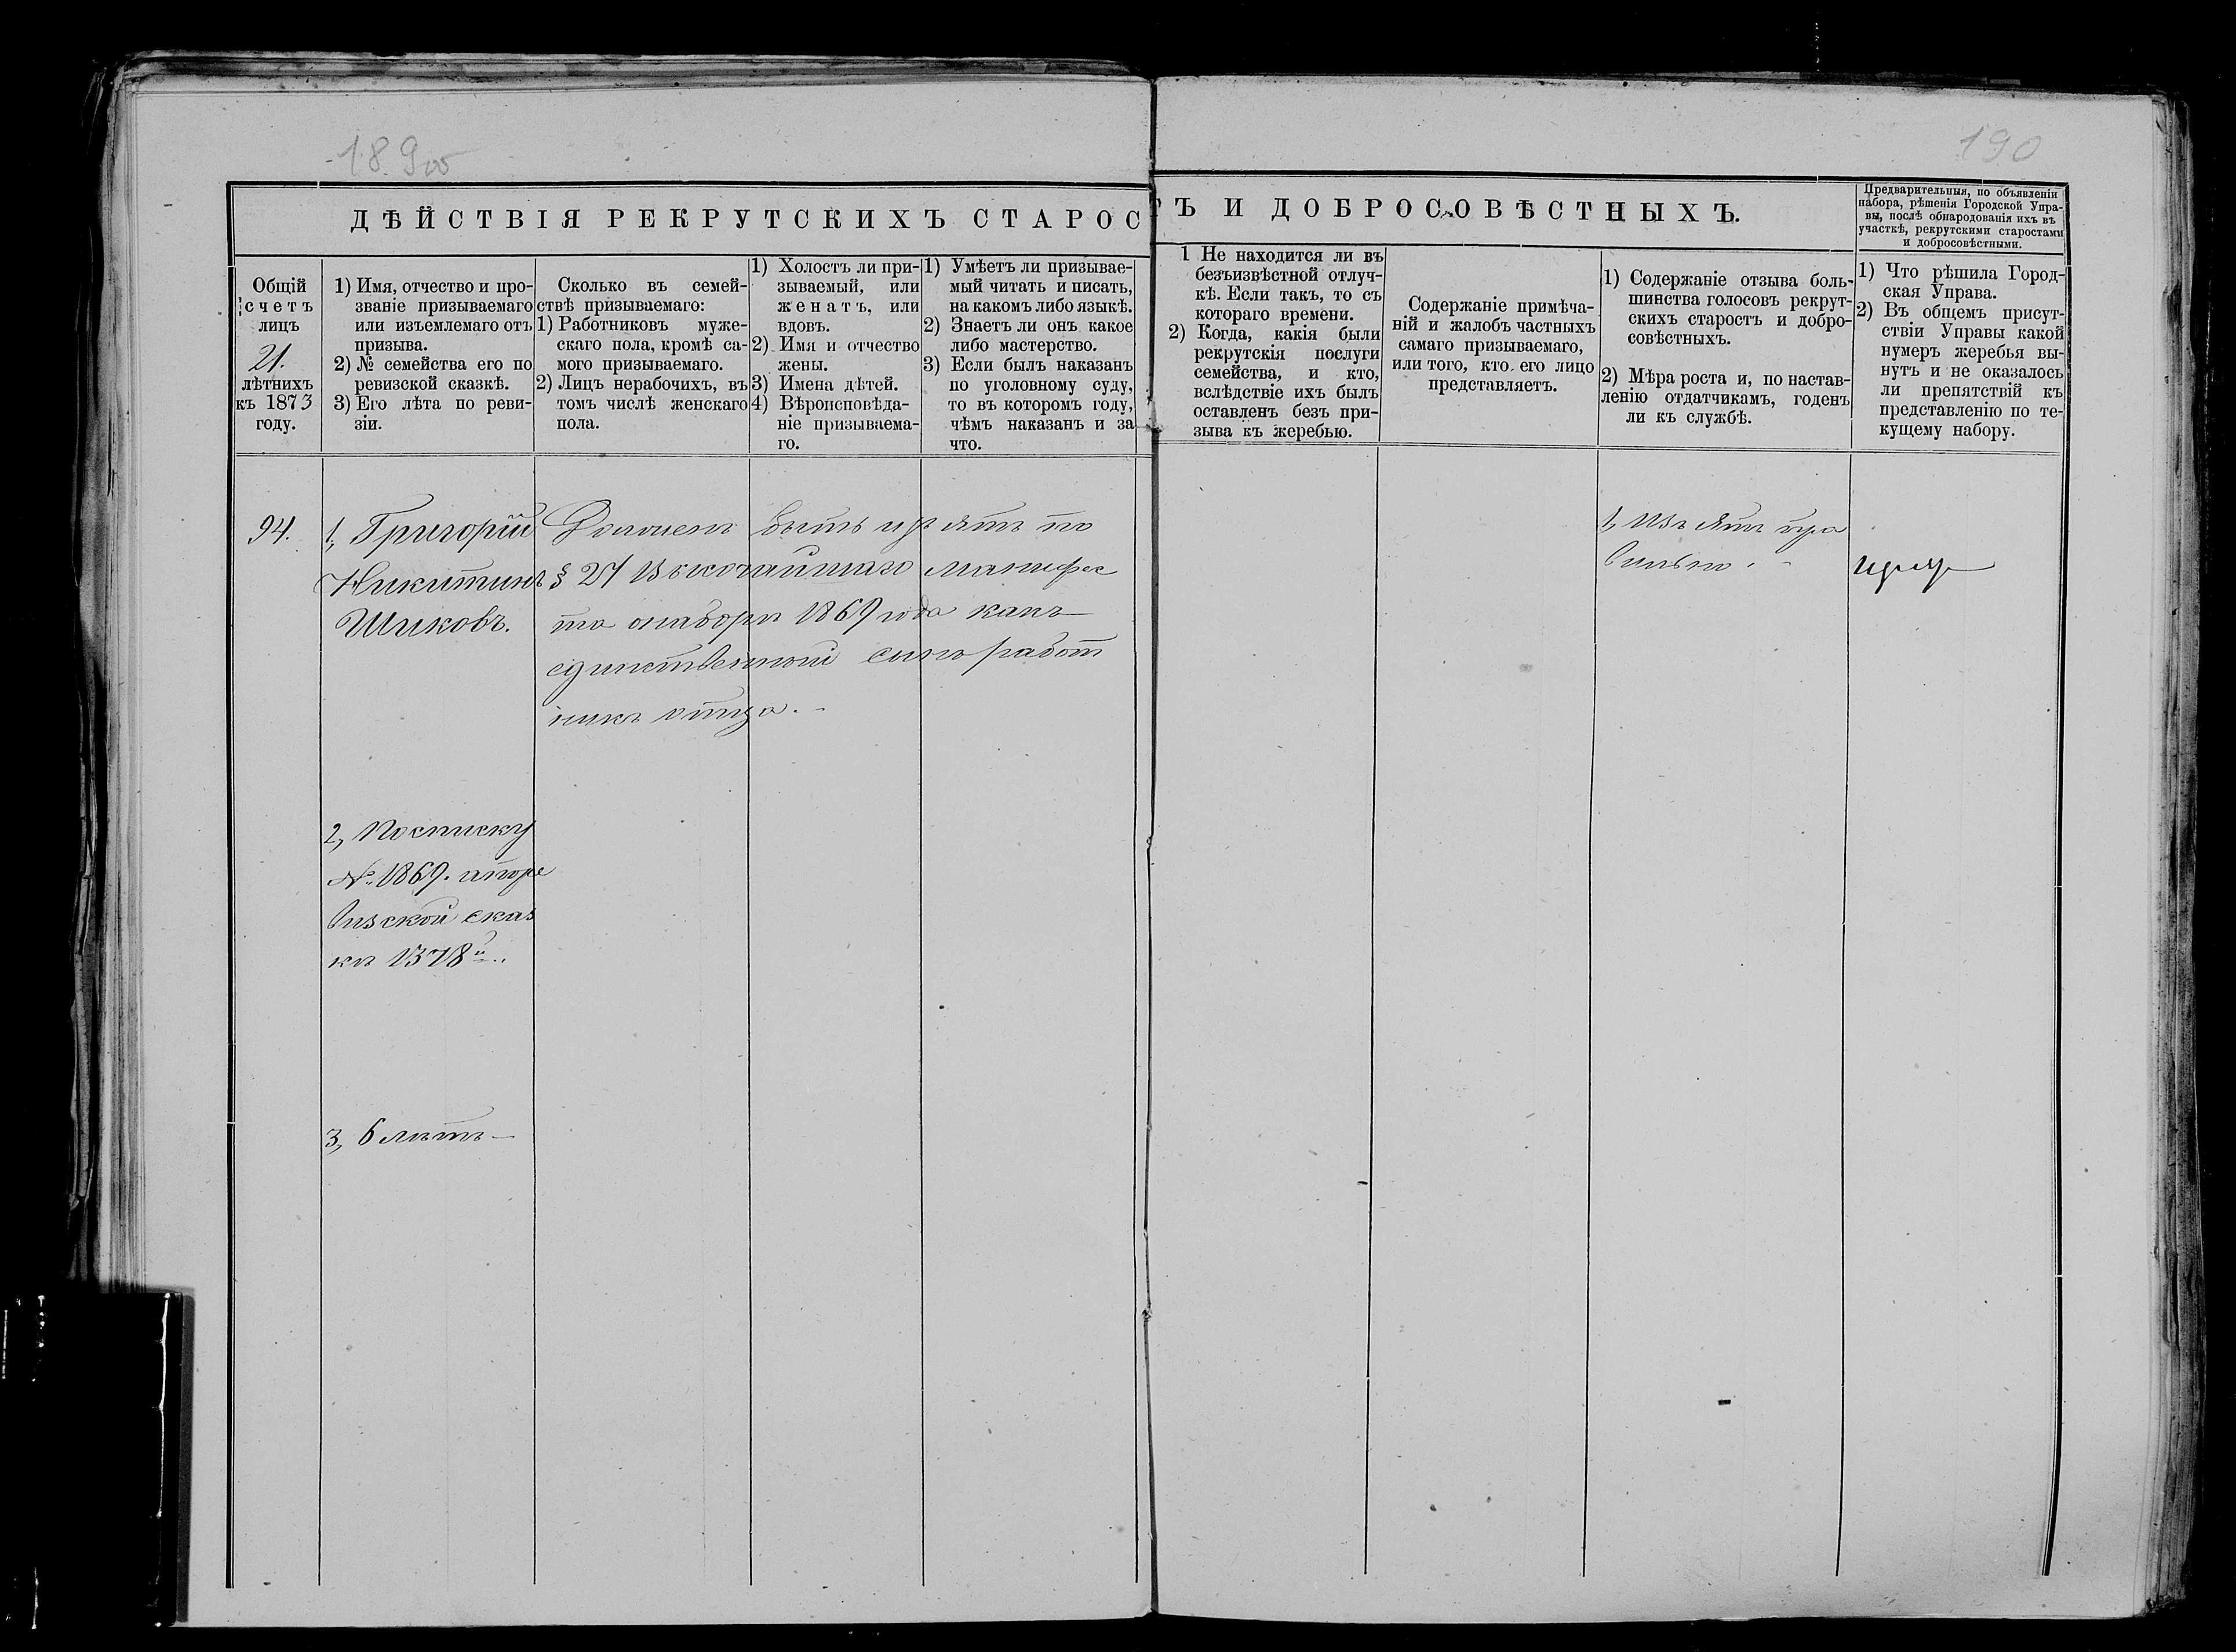 189об
190
ДѢЙСТВІЯ РЕКРУТСКИХЪ СТАРОСТЪ И ДОБРОСОВѢСТНЫХЪ.
Предварительныя, по объявленіи
набора, рѣшенія Городской Упра-
вы, послѣ обнародованія ихъ въ
участкѣ, рекрутскими старостами
и добросовѣстными.
Общій
счетъ
лицъ
21.
лѣтнихъ
къ 1873
году.
1) Имя, отчество и про-
званіе призываемаго
или изъемлемаго отъ
призыва.
2) № семейства его по
ревизской сказкѣ.
3) Его лѣта по реви-
зіи.
Сколько въ семей-
ствѣ призываемаго:
1) Работниковъ муже-
скаго пола, кромѣ са-
мого призываемаго.
2) Лицъ нерабочихъ, въ
томъ числѣ женскаго
пола.
1) Холостъ ли при-
зываемый, или
женатъ, или
вдовъ.
2) Имя и отчество
жены.
3) Имена дѣтей.
4) Вѣроисповѣда-
ніе призываема-
го.
1) Умѣетъ ли призывае-
мый читать и писать,
на какомъ либо языкѣ.
2) Знаетъ ли онъ какое
либо мастерство.
3) Если былъ наказанъ
по уголовному суду,
то въ которомъ году,
чѣмъ наказанъ и за
что.
1 Не находится ли въ
безъизвѣстной отлуч-
кѣ. Если такъ, то съ
котораго времени.
2) Когда, какія были
рекрутскія послуги
семейства, и кто,
вслѣдствіе ихъ былъ
оставленъ безъ при-
зыва къ жеребью.
Содержаніе примѣча-
ній и жалобъ частныхъ
самаго призываемаго,
или того, кто его лицо
представляетъ.
1) Содержаніе отзыва боль-
шинства голосовъ рекрут-
скихъ старостъ и добро-
совѣстныхъ.
2) Мѣра роста и, по настав-
ленію отдатчикамъ, годенъ
ли къ службѣ.
1) Что рѣшила Город-
ская Управа.
2) Въ общемъ присут-
ствіи Управы какой
нумеръ жеребья вы-
нутъ и не оказалось
ли препятствій къ
представленію по те-
кущему набору.
94.
1, Григорій
Никитинъ
Шиковъ.
2, По списку
№ 1869. а по ре
визской сказ
кѣ 1378й.
3, 6 лѣтъ
Долженъ быть изъятъ по
§ 27 Высочайшаго манифес
та о наборѣ 1869 года какъ
единственный сынъ работ
никъ отца.
1, Изъятъ пра
вильно.